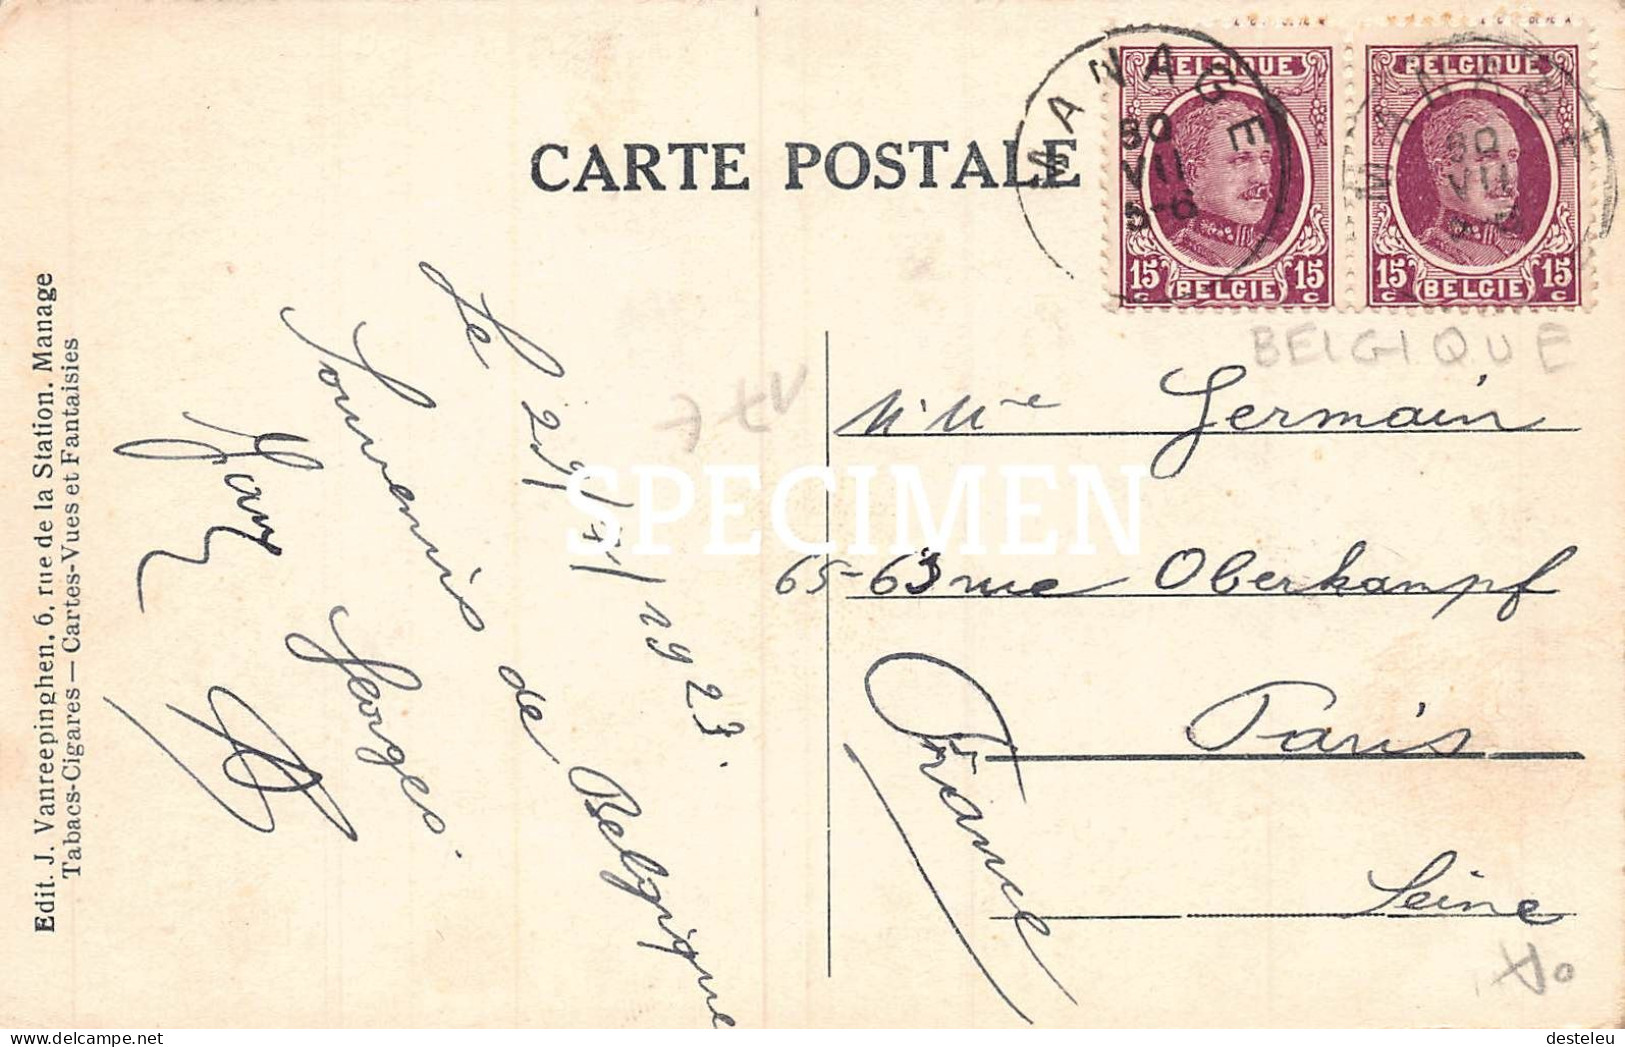 CARTE POSTALE
MANAGE
30
VII
5-6
MANAGE
30
VII
BELGIQUE
15c 15c
BELGIE
BELGIQUE
15c 15c
BELGIE
BELGIQUE
Edit. J. Vanreepinghen, 6, rue de la Station, Manage
Tabacs-Cigares — Cartes-Vues et Fantaisies
Le 29/7/1923.
Souvenirs de Belgique
Georges.
Mme Germain
65-63 rue Oberkampf
Paris
Seine
France
SPECIMEN
delcampe.net
desteleu